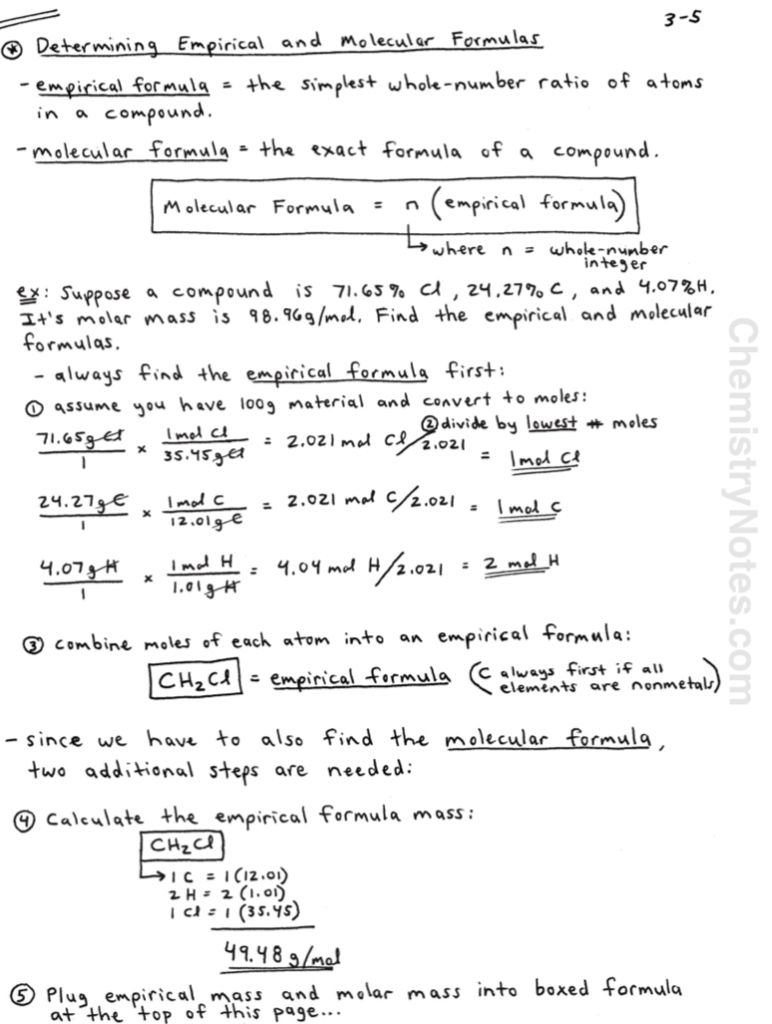 3-5
⊛ Determining Empirical and Molecular Formulas
- empirical formula = the simplest whole-number ratio of atoms
in a compound.
- molecular formula = the exact formula of a compound.
Molecular Formula = n (empirical formula)
↳ where n = whole-number
integer
ex: Suppose a compound is 71.65% Cl, 24.27% C, and 4.07% H.
It's molar mass is 98.96g/mol. Find the empirical and molecular
formulas.
- always find the empirical formula first:
① assume you have 100g material and convert to moles:
② divide by lowest # moles
71.65g Cl / 1 × 1 mol Cl / 35.45g Cl = 2.021 mol Cl / 2.021 = 1 mol Cl
24.27g C / 1 × 1 mol C / 12.01g C = 2.021 mol C / 2.021 = 1 mol C
4.07g H / 1 × 1 mol H / 1.01g H = 4.04 mol H / 2.021 = 2 mol H
③ combine moles of each atom into an empirical formula:
CH₂Cl = empirical formula (C always first if all
elements are nonmetals)
- since we have to also find the molecular formula,
two additional steps are needed:
④ Calculate the empirical formula mass:
CH₂Cl
↳ 1 C = 1(12.01)
2 H = 2 (1.01)
1 Cl = 1 (35.45)
49.48 g/mol
⑤ Plug empirical mass and molar mass into boxed formula
at the top of this page...
ChemistryNotes.com